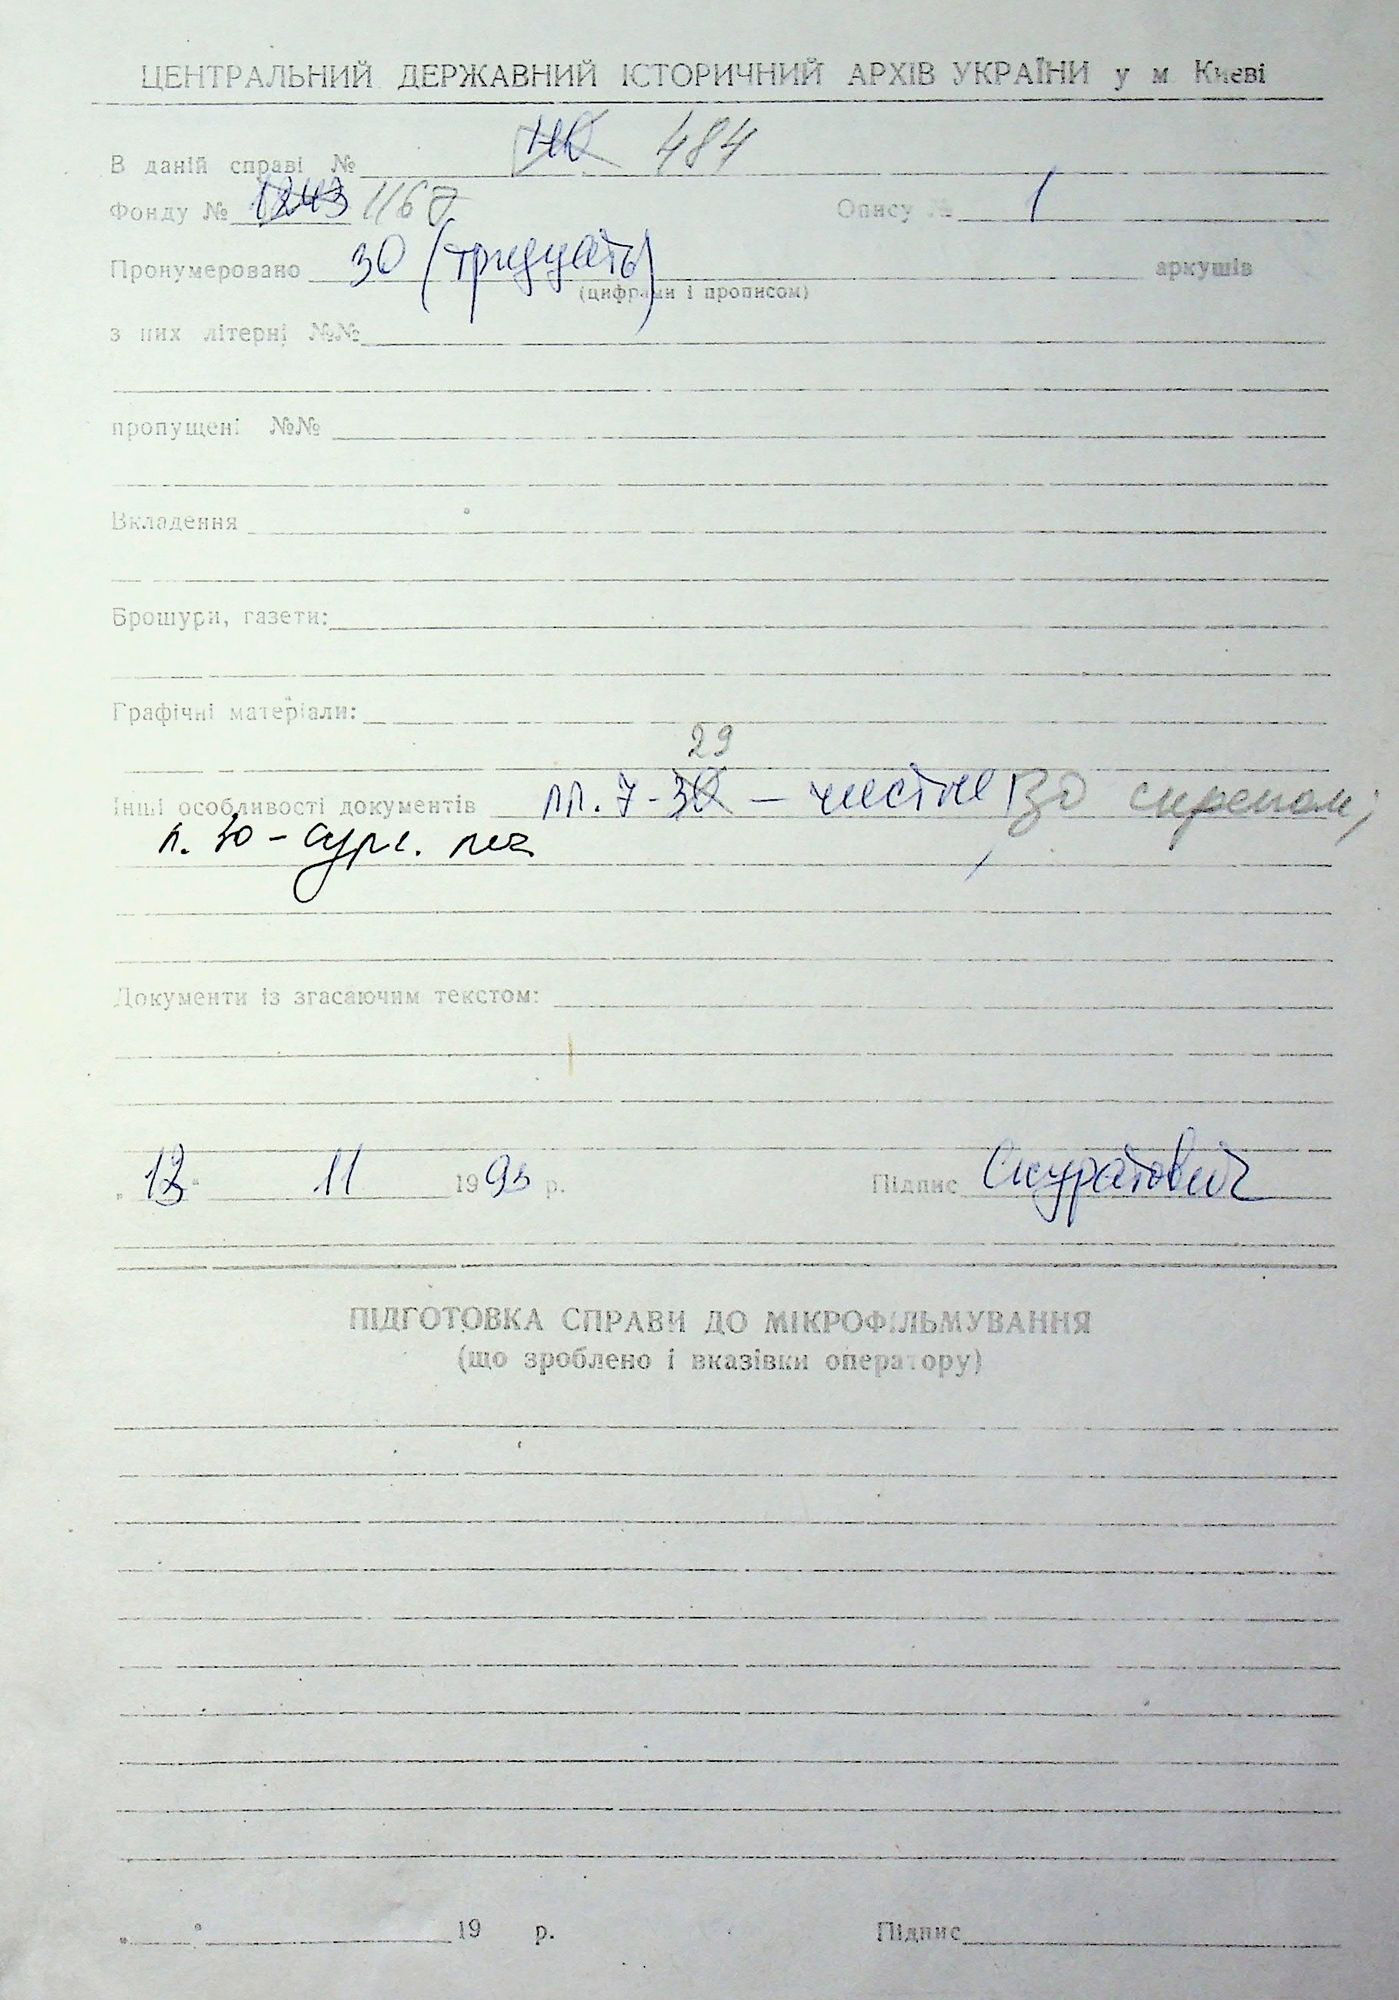 ЦЕНТРАЛЬНИЙ ДЕРЖАВНИЙ ІСТОРИЧНИЙ АРХІВ УКРАЇНИ у м Києві
В даній справі № 484
Фонду № 1243 1167 Опису № 1
Пронумеровано 30 (тридцать) аркушів
(цифрами і прописом)
з них літерні №№
пропущені №№
Вкладення
Брошури, газети:
Графічні матеріали:
29
Інші особливості документів лл. 7-30 — чистые,
л. 30 - сург. печ
Документи із згасаючим текстом:
„12“ 11 1993 р. Підпис Скуратович
ПІДГОТОВКА СПРАВИ ДО МІКРОФІЛЬМУВАННЯ
(що зроблено і вказівки оператору)
„ “ 19 р. Підпис